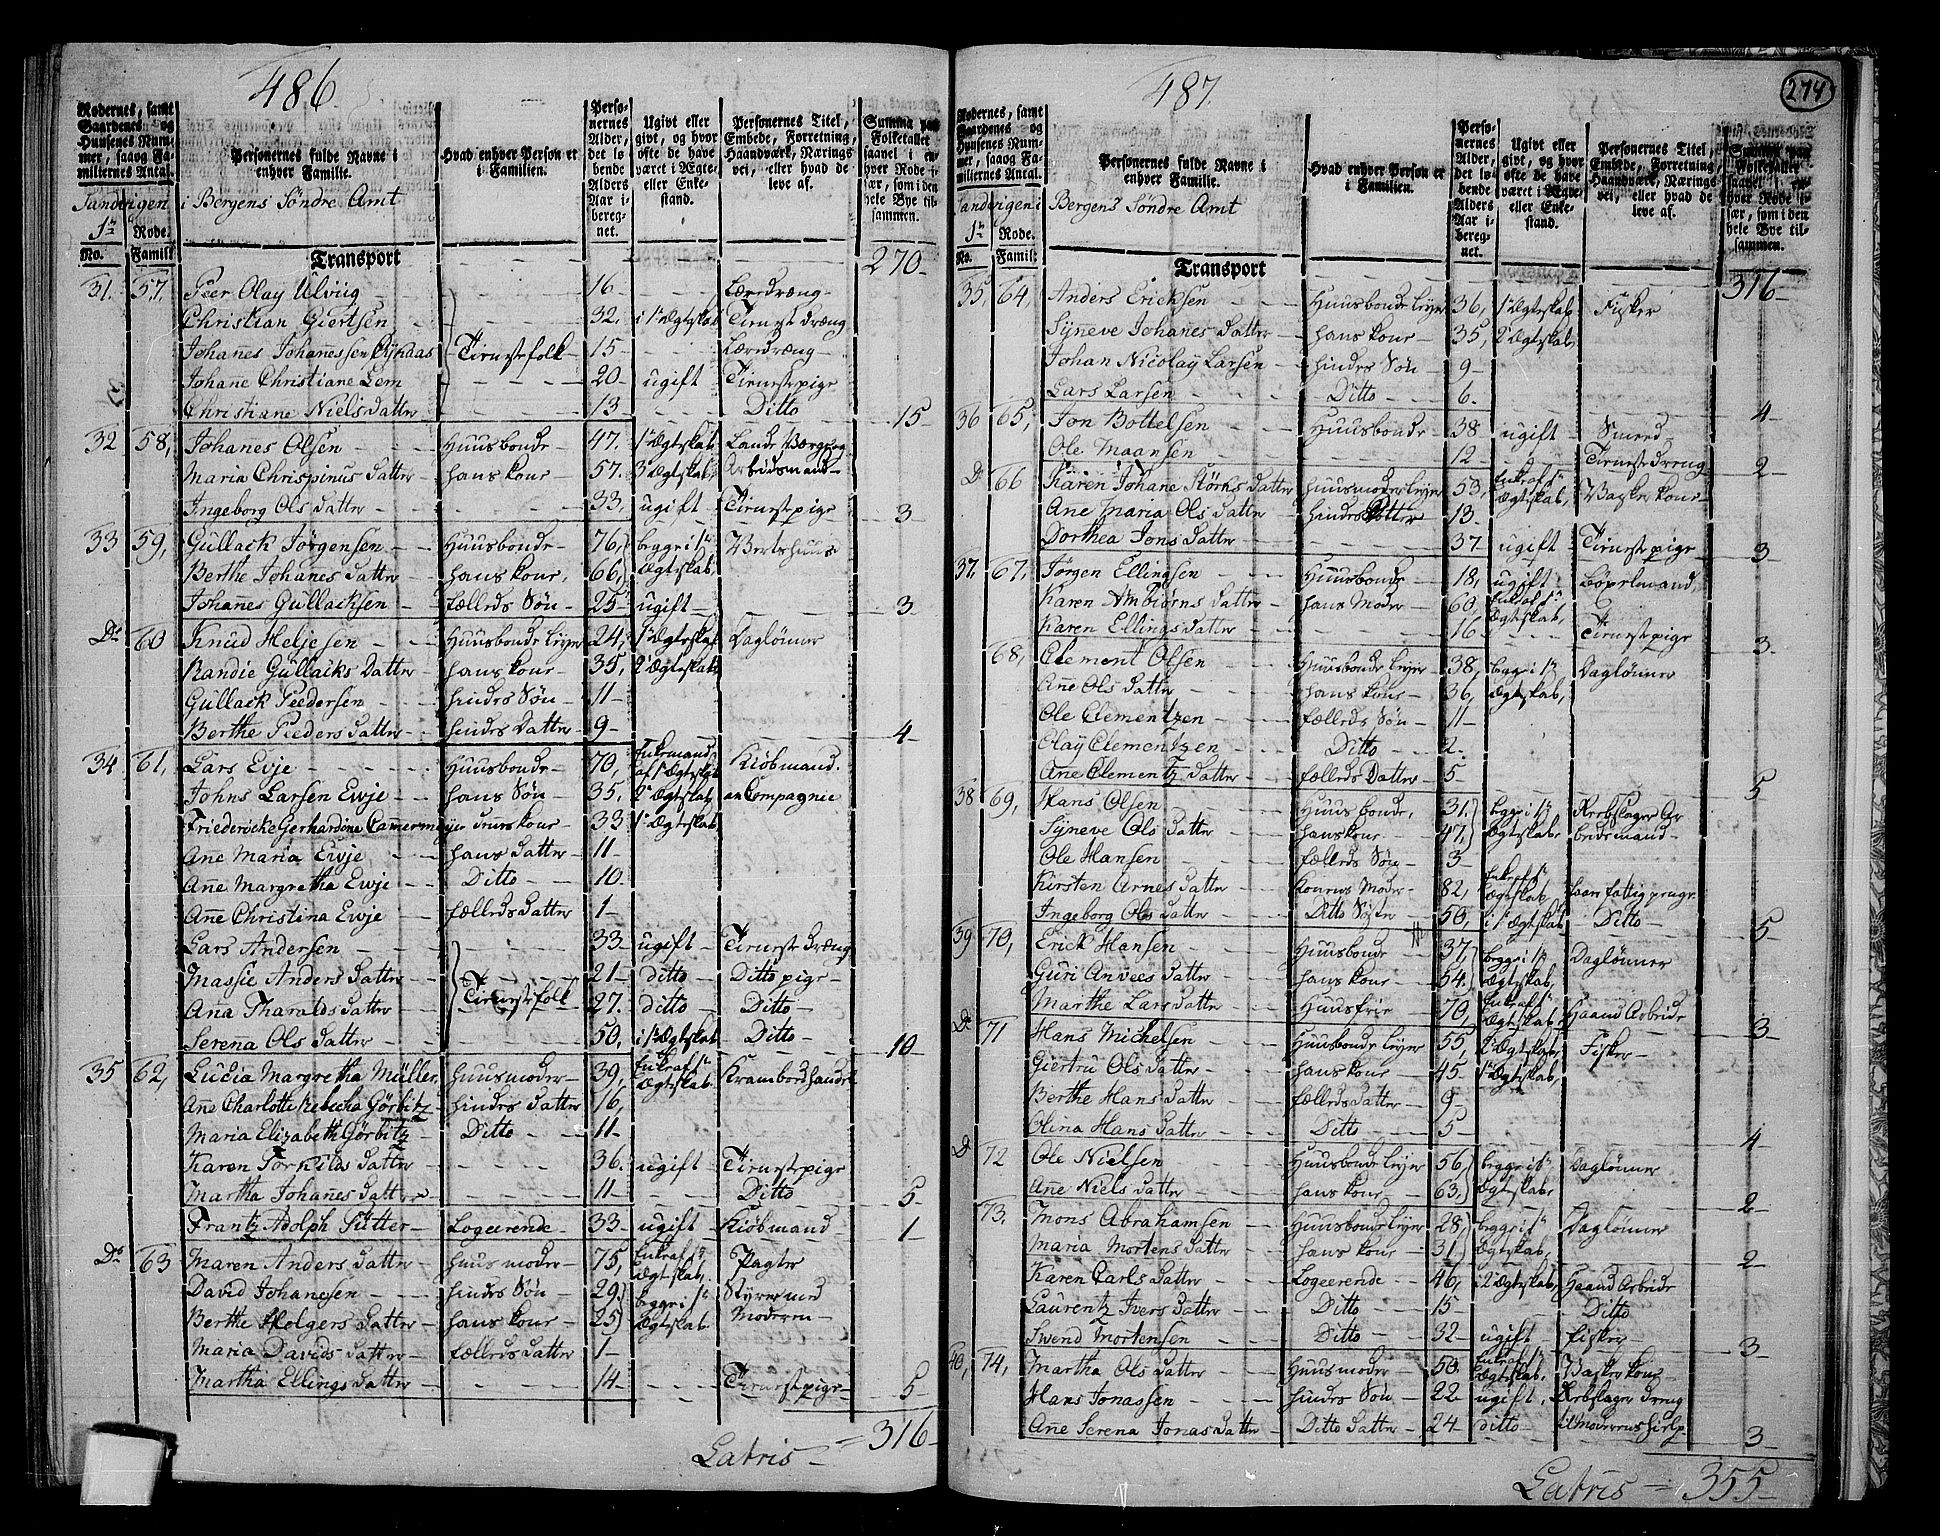 486.
Rodernes, samt Gaardenes og Huusenes Nummer, saaog Familiernes Antal.
Personernes fulde Navne i enhver Familie.
Hvad enhver Person er i Familien.
Personernes Alder, det løbende Alders Aar iberegnet.
Ugivt eller givt, og hvor ofte de have været i Ægte- eller Enkestand.
Personernes Titel, Embede, Forretning, Haandværk, Næringsvei, eller hvad de leve af.
Summa paa Folketallet saavel i enhver Rode især, som i den hele Bye tilsammen.
Sandvigen i Bergens Søndre Amt
1te Rode.
No. Famili
Transport 270
31. 57, Peer Olay Ulvtig 16 Læredræng
Christian Giertsen 32, i 1te Ægteskab Tieneste dræng
Johanes Johanessen Tienestefolk 15 Læredræng
Johane Christiane Lem 20 ugift Tienestepige
Christiane Niels datter 13 Ditto 15
32 58, Johanes Olsen Huusbonde 47. 1te Ægteskab
Maria Chrispinus datter hans kone 57. 3de Ægteskab Arbeidsmand
Ingeborg Ols datter 33. ugift Tienestepige 3
33 59, Gullack Jørgensen Huusbonde 76, begge i 1te Vertshuus
Berthe Johanes datter hans kone, 66, Ægteskab,
Johanes Gullacksen fælleds Søn 25 ugift 3
Do 60 Knud Heljesen Huusbonde leyer 24, 1te Ægteskab Daglønner
Randie Gullacks Datter hans kone 35, 2de Ægteskab
Gullack Peedersen hindes Søn 11
Berthe Peeders datter hindes Datter 9 4
34 61, Lars Evje Huusbonde 70, Enkemand af 1te Ægteskab Kiøbmand.
Johns Larsen Ewje hans Søn 35, 2de Ægteskab en Compagnie
Friedericke Gerhardina Cammermeyer dennes kone 33 1te Ægteskab,
Ane Maria Ewje hans datter 11
Ane Margretha Ewje Ditto 10
Ane Christina Ewje fælleds datter 1
Lars Andersen 33 ugift Tieneste dræng
Massie Anders datter Tienestefolk 21 ditto Ditto pige
Ana Tharalds datter 27. ditto Ditto
Serena Ols datter 50, i 1te Ægteskab Ditto 10
35 62, Lucia Margretha Müller, huusmoder 39, Enke af 1te Ægteskab Krambodhandel
Ane Charlotte Rebecha Görbitz hindes datter 16,
Maria Elizabeth Görbitz Ditto 11
Karen Torkilds datter 36. ugift Tienestepige
Martha Johanes datter 11 Ditto 5
Frantz Adolph Sütter Logeerende 33 ugift Kiøbmand 1
Do 63 Maren Anders datter huusmoder 75, Enke af 1te Ægteskab,
David Johanesen hindes Søn 29, begge i 1te Styrer med
Berthe Holgers datter hans kone 25 Ægteskab Moderen
Maria Davids datter fælleds datter 1
Martha Ellings datter 14 Tienestepige 5
Latris 316
487.
274
Rodernes, samt Gaardenes og Huusenes Nummer, saaog Familiernes Antal.
Personernes fulde Navne i enhver Familie.
Hvad enhver Person er i Familien.
Personernes Alder, det løbende Alders Aar iberegnet.
Ugivt eller givt, og hvor ofte de have været i Ægte- eller Enkestand.
Personernes Titel, Embede, Forretning, Haandværk, Næringsvei, eller hvad de leve af.
Summa paa Folketallet saavel i enhver Rode især, som i den hele Bye tilsammen.
Sandvigen i Bergens Søndre Amt
1te Rode.
No. Famili
Transport 316
35, 64, Anders Ericksen Huusbonde leyer 36, 1te Ægteskab Fisker
Syneve Johanes datter hans kone 35, 2de Ægteskab,
Johan Nicolay Larsen hindes Søn 9
Lars Larsen Ditto 6. 4
36 65, Jon Bottelsen Huusbonde 38 ugift Smeed
Ole Maansen 12 Tienestedreng 2
Do 66 Karen Johane Størks datter huusmoder leyer 53, Enke af 1te Ægteskab, Vasker kone
Ane Maria Ols datter hindes Datter 13.
Dorthea Jons datter 37 ugift Tienestepige 3
37. 67, Jørgen Ellingsen Huusbonde 18, ugift
Karen Ambiörns datter hans Moder 60, Enke af 1te Ægteskab,
Karen Ellings datter 16 Tienestepige 3
68, Clement Olsen Huusbonde leyer 38, begge i 1te Daglønner
Ane Ols datter hans kone 36, Ægteskab,
Ole Clementzen fælleds Søn 11
Olay Clementzen Ditto 2.
Ane Clementz datter fælleds Datter 5 5
38 69, Hans Olsen Huusbonde, 31. begge i 1te Reebslager Ar
Syneve Ols datter hans kone 47. Ægteskab beidsmand
Ole Hansen fælleds Søn 3
Kirsten Arnes datter Konens Moder 82, Enke af 1te Ægteskab,
Ingeborg Ols datter Ditto Søster 50, i 1te Ægteskab Ditto 5
39 70, Erick Hansen Huusbonde 37, begge i 1te Daglønner
Guri Anvees datter hans kone 54. Ægteskab,
Marthe Lars datter Huusfrie 70, Enke af 1te Ægteskab, Haand Arbeide 3
Do 71 Hans Michelsen Huusbonde leyer 55, 2de Ægteskab, Fisker
Giertru Ols datter hans kone 45. 1te Ægteskab,
Berthe Hans datter fælleds datter 9
Olina Hans datter Ditto 5 4
Do 72 Ole Nielsen Huusbonde leyer 56, begge i 1te Daglønner
Ane Niels datter hans kone 63. Ægteskab 2
73. Mons Abrahamsen Huusbonde leyer 28, begge i 1te Daglønner
Maria Mortens datter hans kone 31. Ægteskab, 2
Karen Carls datter Logeerende 46, i 2de Ægteskab, Haand Arbeide
Laurentz Ivers datter Ditto 15 Ditto
Swend Mortensen Ditto 32 ugift fisker 3
40, 74, Martha Ols datter Huusmoder 50 Enke af 1te Ægteskab, Vasker kone
Hans Jonassen hindes Søn 22 ugift, Reebslager dreng
Ane Serena Jonas datter Ditto datter 24 ditto til Moderens hielp 3
Latris 355